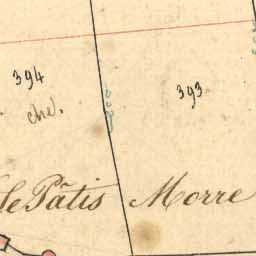 394
393
che.
le Pâtis Morre